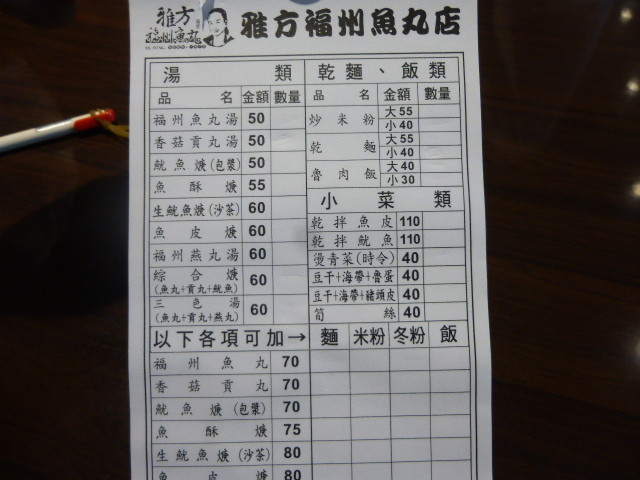 雅方
福州魚丸
雅方福州魚丸店
湯 類
品 名 金額 數量
福州魚丸湯 50
香菇貢丸湯 50
魷魚焿(包漿) 50
魚酥焿 55
生魷魚焿(沙茶) 60
魚皮焿 60
福州燕丸湯 60
綜合焿
(魚丸+貢丸+魷魚) 60
三色湯
(魚丸+貢丸+燕丸) 60
乾麵、飯類
品 名 金額 數量
炒米粉 大55
小40
乾麵 大55
小40
魯肉飯 大40
小30
小菜類
乾拌魚皮 110
乾拌魷魚 110
燙青菜(時令) 40
豆干+海帶+魯蛋 40
豆干+海帶+豬頭皮 40
筍絲 40
以下各項可加→ 麵 米粉 冬粉 飯
福州魚丸 70
香菇貢丸 70
魷魚焿(包漿) 70
魚酥焿 75
生魷魚焿(沙茶) 80
魚皮焿 80